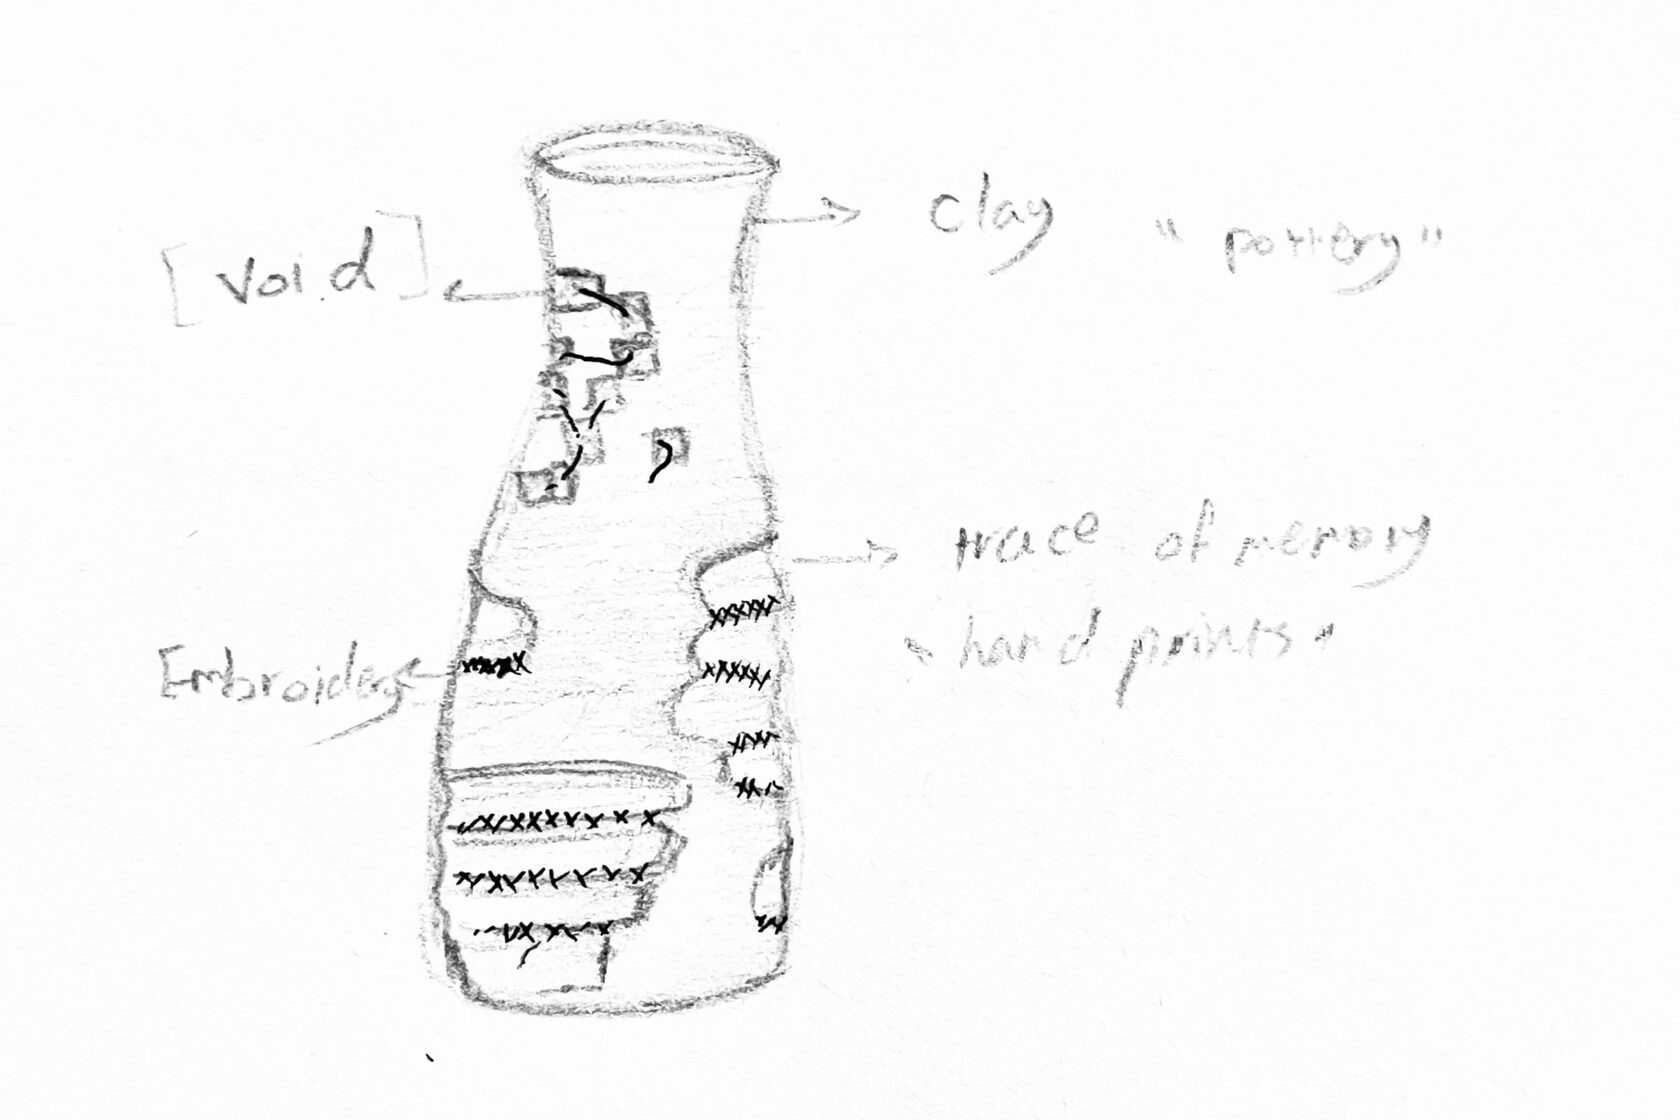 clay "pottery"
[void]
trace of memory
"hand prints"
Embroidery